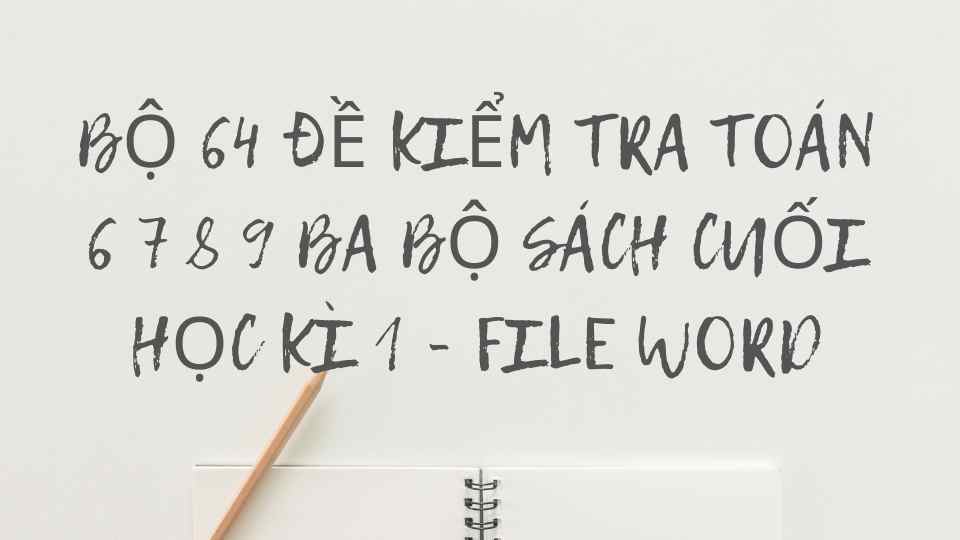 BỘ 64 ĐỀ KIỂM TRA TOÁN
6 7 8 9 BA BỘ SÁCH CUỐI
HỌC KÌ 1 - FILE WORD